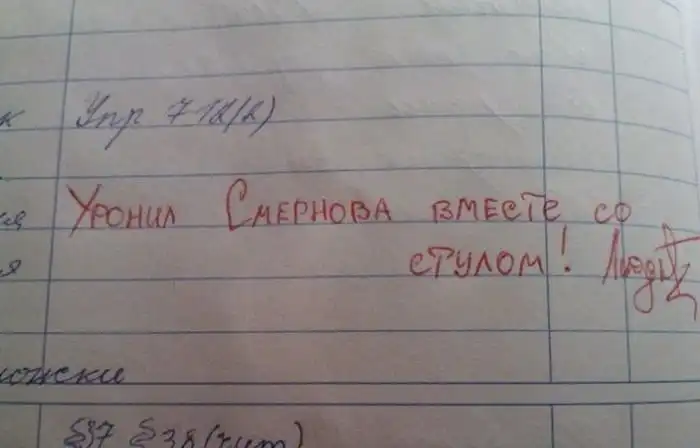 к Упр 712(2)
Уронил Смернова вместе со
я стулом!
§37 §38(чит)